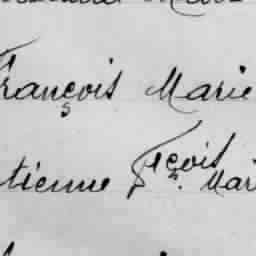 François Marie
tienne Fçois. Mar